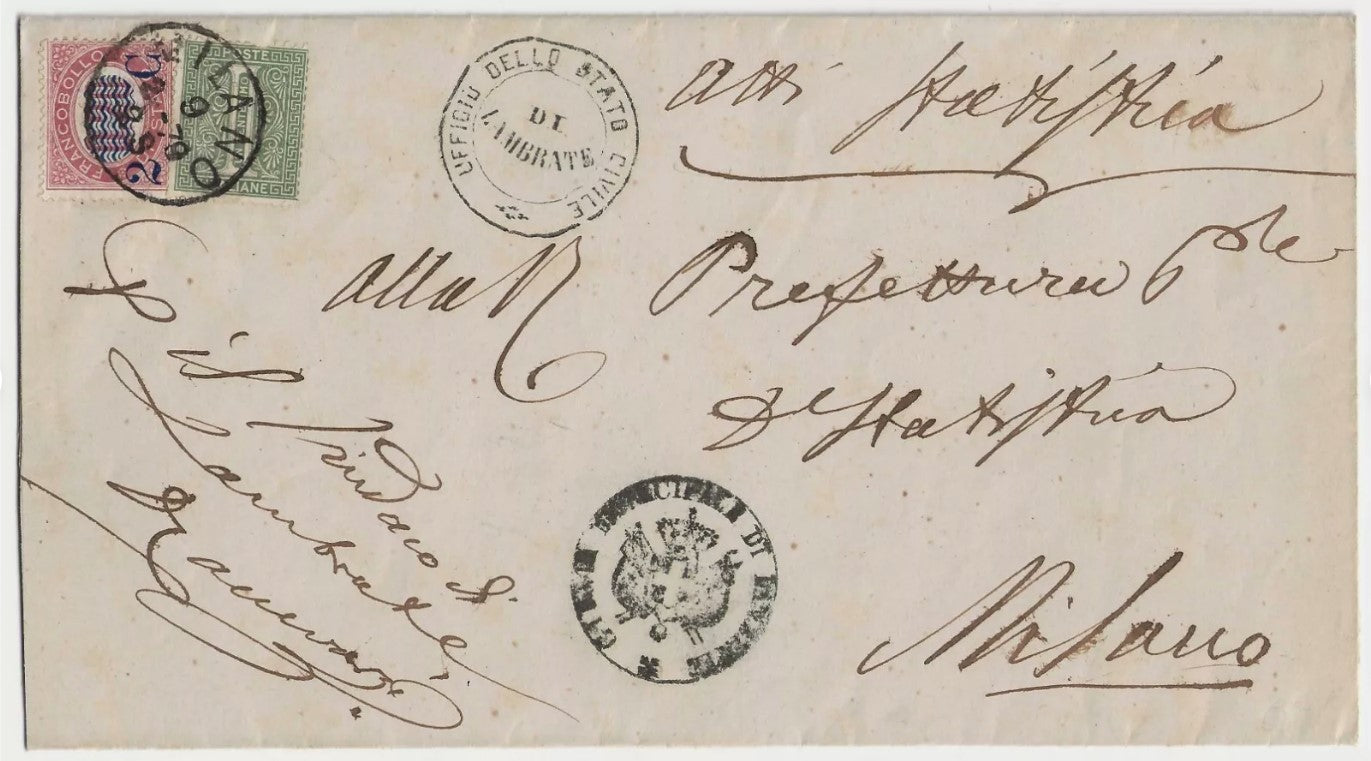 FRANCOBOLLO
2 C
POSTE
MILANO
9
79
UFFICIO DELLO STATO CIVILE
DI
LAMBRATE
Atti Statistica
Alla R Prefettura Ple
D' Statistica
Milano
il Sindaco di
Lambrate
MUNICIPALE DI